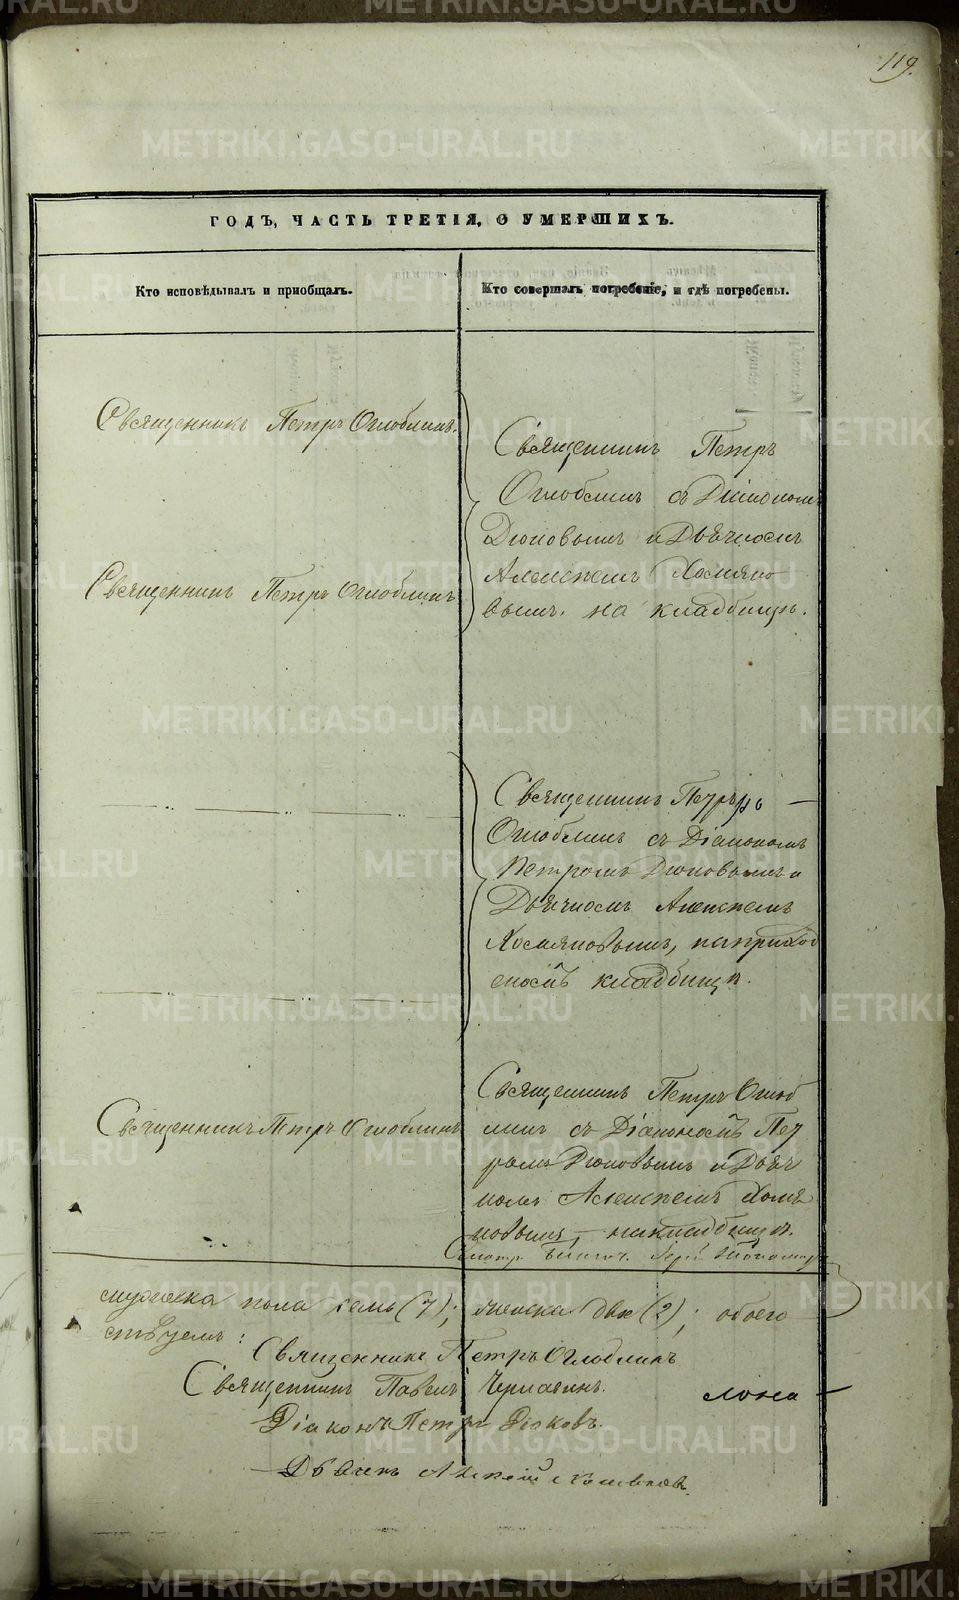 119.
ГОДЪ, ЧАСТЬ ТРЕТІЯ, О УМЕРШИХЪ.
Кто исповѣдывалъ и пріобщалъ.
Кто совершалъ погребеніе, и гдѣ погребены.
Священникъ Петръ Оглоблинъ.
Священникъ Петръ
Оглоблинъ съ Діакономъ
Дюковымъ и Дьячкомъ
Алексѣемъ Хомяко
вымъ. на кладбищѣ.
Священникъ Петръ Оглоблинъ
Священникъ Петръ
Оглоблинъ съ Діакономъ
Петромъ Дюковымъ и
Дьячкомъ Алексѣемъ
Хомяковымъ, на приход
скомъ кладбищѣ.
Священникъ Петръ Оглоблинъ
Священникъ Петръ Оглоб
линъ съ Діакономъ Пет
ромъ Дюковымъ и Дьяч
комъ Алексѣемъ Хомя
ковымъ, на кладбищѣ.
мужеска пола семь (7); женска двѣ (2); обоего
ствуемъ:
Священникъ Петръ Оглоблинъ
Священникъ Павелъ Чернавинъ.
Діаконъ Петръ Дюковъ.
Дьячекъ Алексѣй Хомяковъ.
METRIKI.GASO-URAL.RU